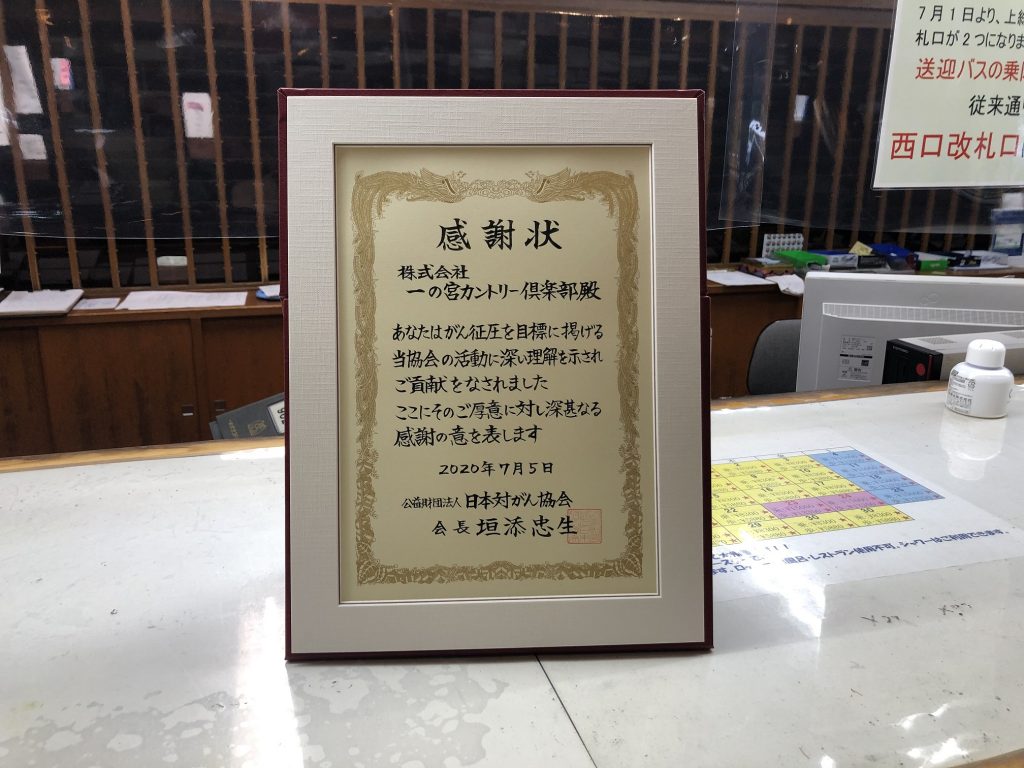 感謝状
株式会社
一の宮カントリー倶楽部殿
あなたはがん征圧を目標に掲げる
当協会の活動に深い理解を示され
ご貢献をなされました
ここにそのご厚意に対し深甚なる
感謝の意を表します
2020年7月5日
公益財団法人 日本対がん協会
会長 垣添忠生
7月1日より、上総
札口が2つになりま
送迎バスの乗
従来通
西口改札口
レストラン使用不可、シャワーはご利用できます。